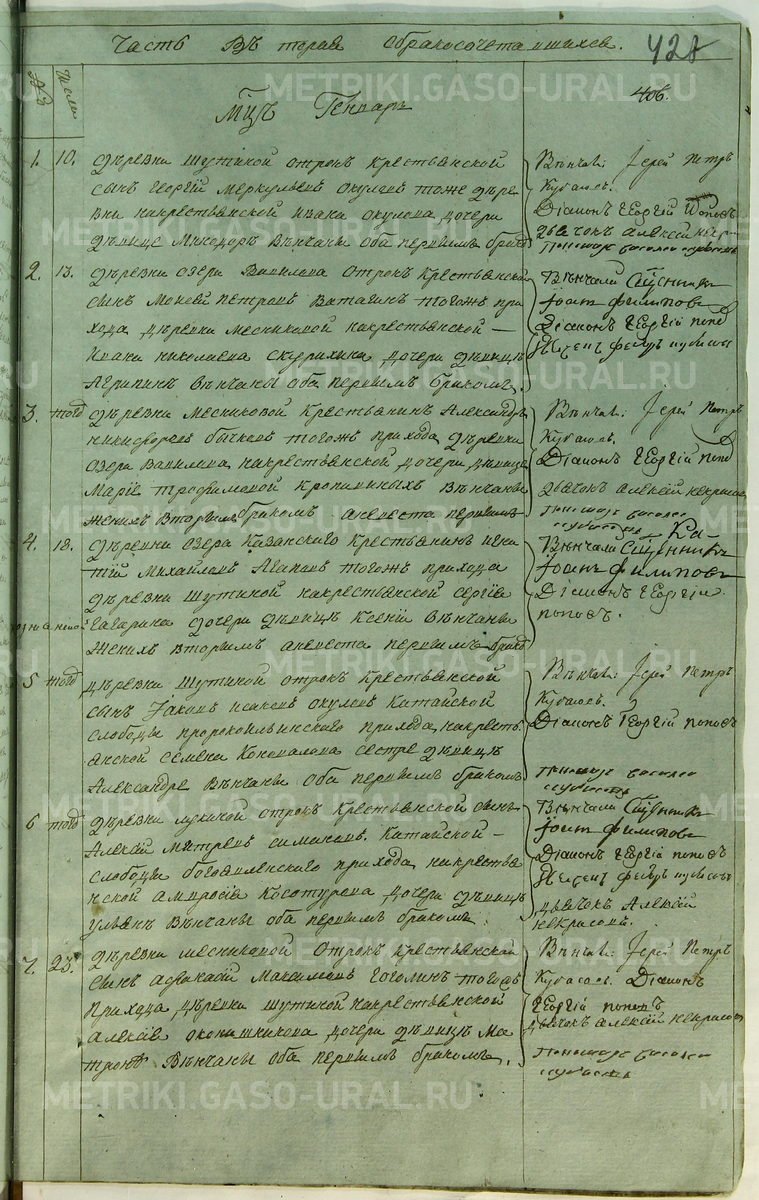 Часть Въ торая обракосочетавшихся.
428
406.
Мцъ Генварь
1. 10. деревни шутиной отрокъ крестьянской
сынъ Георгий Меркульевъ окуловъ тоже дере
вни накрестьянской ивана окулова дочери
девице Вѣнчаны оба первымъ брако
Вѣнчалъ: Іерей Петръ
Кубасовъ.
Діаконъ Георгій Поповъ
дьячокъ алексей некра
пономарь василей
2. 13. деревни озера Вавилова отрокъ крестьянской
сынъ Мокей петровъ Ватагинъ тогожъ при
хода деревни месниковой накрестьянской —
ивана николаева скурихина дочери девице
Агрипине Вѣнчаны оба первымъ бракомъ.
Вѣнчали Сщенникъ
Іоанъ филиповъ
Діаконъ Георгій попов
3. того деревни месниковой крестьянинъ Александръ
никифоровъ бычковъ тогожъ прихода деревни
озера Вавилова накрестьянской дочери девице
Маріе трофимовой кропаниныхъ Вѣнчаны
жених Вторымъ бракомъ аневеста первымъ
Вѣнчалъ: Іерей Петръ
Кубасовъ.
Діаконъ Георгій попов
дьячокъ алексій некрасов
пономарь василей
4. 18. деревни озера Казанского крестьянинъ игна
тій Михайловъ Агаповъ тогожъ прихода
деревни шутиной накрестьянской сергѣя
Гагарина дочери девице Ксеніи Вѣнчаны
Жених Вторымъ аневеста первымъ брако
Вѣнчали Сщенникъ
Іоанъ филиповъ
Діаконъ Георгій
поповъ.
5 того деревни шутиной отрокъ крестьянской
сынъ Іаковъ исаковъ окуловъ Катайской
слободы пророкоильинского прихода накресть
янской семена Коновалова сестре девице
Александре Вѣнчаны оба первымъ бракомъ
Вѣнчалъ: Іерей Петръ
Кубасовъ.
Діаконъ Георгій поповъ
пономарь василей
6 того деревни лукиной отрокъ крестьянской сынъ
Алексей митревъ симаковъ. Катайской —
слободы богоявленского прихода накрестья
нской амвросія Косотурова дочери девице
ульяне Вѣнчаны оба первымъ бракомъ
Вѣнчали Сщенникъ
Іоанъ филиповъ
Діаконъ Георгій поповъ
дьячокъ Алексей
некрасовй.
7. 23. деревни месниковой Отрокъ крестьянской
сынъ афонасій Максимовъ Гоголинъ тогожъ
прихода деревни шутиной накрестьянской
алексѣя оконишникова дочери девице Ма
троне Вѣнчаны оба первымъ бракомъ.
Вѣнчалъ: Іерей Петръ
Кубасовъ. Діаконъ
Георгій поповъ
дьячокъ алексій некрасов
пономарь василей
METRIKI.GASO-URAL.RU